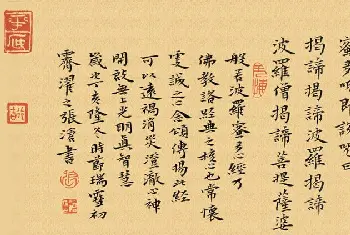 蜜多呪即說呪曰
揭諦揭諦波羅揭諦
波羅僧揭諦菩提薩婆
般若波羅蜜多心經乃
佛教諸經典之核心也常懷
虔誠之心念頌傳揚此經
可以遠禍消災澄澈心神
開啟無上光明真智慧
歲次亥隆冬時節瑞雪初
霽濯之張濱書